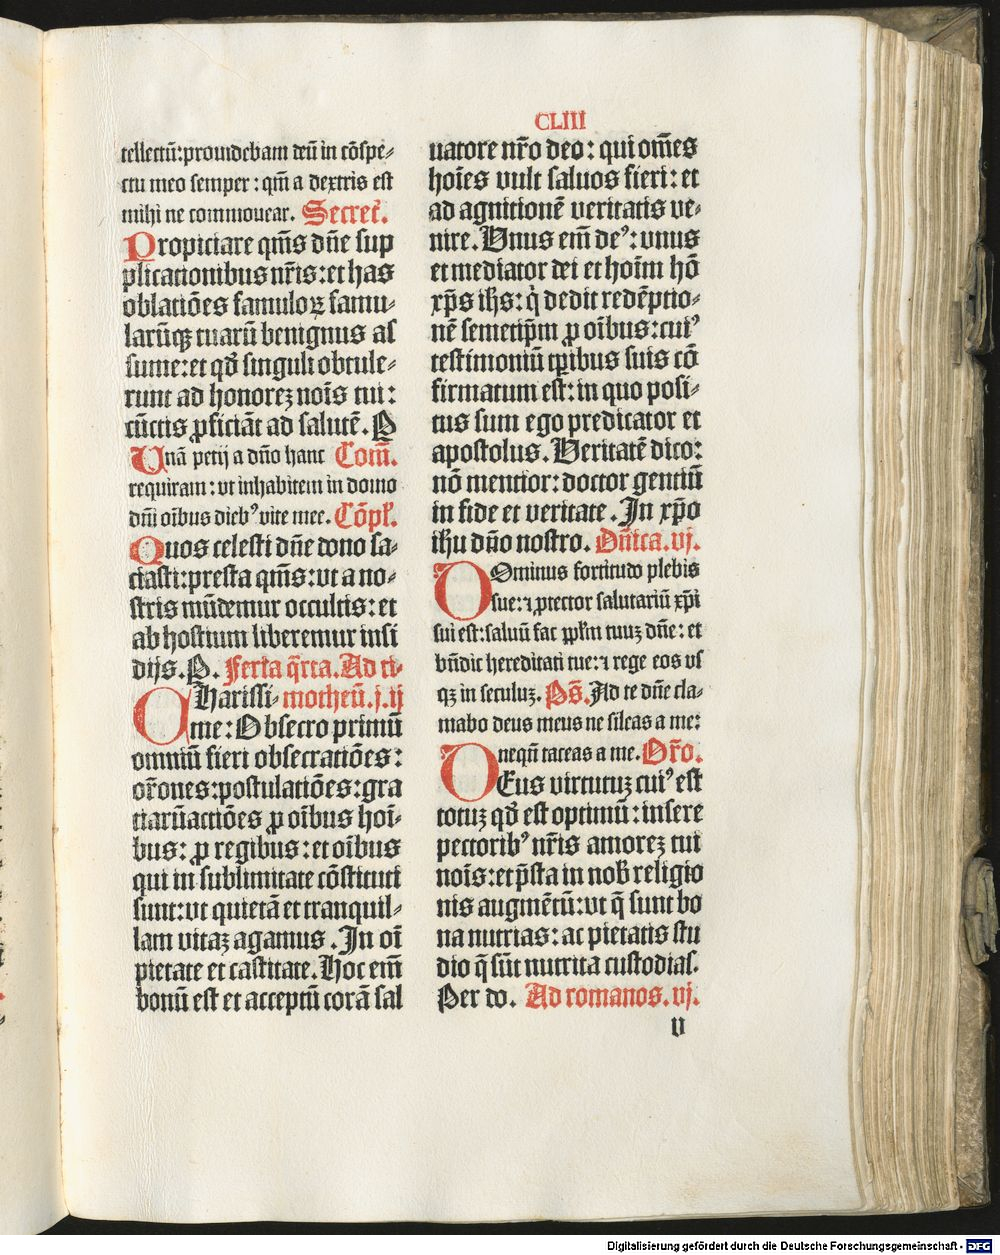 CLIII
tellectū:prouidebam deū in cōspe-
ctu meo semper : qm̄ a dextris est
mihi ne commouear. Secret̄.
Propiciare qm̄s dn̄e sup
plicationibus nr̄is:et has
oblatiōes famuloꝝ famu-
larūqꝫ tuarū benignus as
sume:et qd̄ singuli obtule-
runt ad honoreꝫ nois̄ tui :
cūctis ꝓficiāt ad salutē. P
Vnā petij a dn̄o hanc Com̄.
requiram : vt inhabitem in domo
dn̄i oībus diebꝰ vite mee. Cōpl̄.
Quos celesti dn̄e dono sa-
ciasti:presta qm̄s:vt a no-
stris mūdemur occultis: et
ab hostium liberemur insi
dijs. P. Feria q̄rta. Ad ti-
CHarissi- motheū.j.ij
me: Obsecro primū
omniū fieri obsecratiōes :
or̄ones:postulatiōes:gra
tiarūactiōes ꝓ oībus hoī-
bus: ꝓ regibus : et oībus
qui in sublimitate cōstituti
sunt:vt quietā et tranquil-
lam vitaꝫ agamus . In oī
pietate et castitate. Hoc em̄
bonū est et acceptū corā sal
uatore nr̄o deo : qui om̄es
hoīes vult saluos fieri: et
ad agnitionē veritatis ve-
nire. Vnus em̄ deꝰ: vnus
et mediator dei et hoīm hō
xp̄s ihs̄: q̇ dedit redēptio-
nē semetip̄m ꝓ oībus:cuiꝰ
testimoniū tp̄ibus suis cō
firmatum est: in quo posi-
tus sum ego predicator et
apostolus. Veritatē dico:
nō mentior: doctor gentiū
in fide et veritate . In xp̄o
ihu dn̄o nostro. Dn̄ica. vj.
DOminus fortitudo plebis
sue: ⁊ ꝓtector salutariū xp̄i
sui est: saluū fac ppl̄m tuuꝫ dn̄e: et
bn̄dic hereditati tue: ⁊ rege eos vs
qꝫ in seculuꝫ. Ps̄. Ad te dn̄e cla-
mabo deus meus ne sileas a me:
nequn̄ taceas a me. Or̄o.
DEus virtutuꝫ cuiꝰ est
totuꝫ qd̄ est optimū : insere
pectoribꝰ nr̄is amoreꝫ tui
nois̄: et p̄sta in nob̄ religio
nis augmētū: vt q̄ sunt bo
na nutrias: ac pietatis stu
dio q̄ sūt nutrita custodias.
Per do. Ad romanos. vj.
v
Digitalisierung gefördert durch die Deutsche Forschungsgemeinschaft - DFG